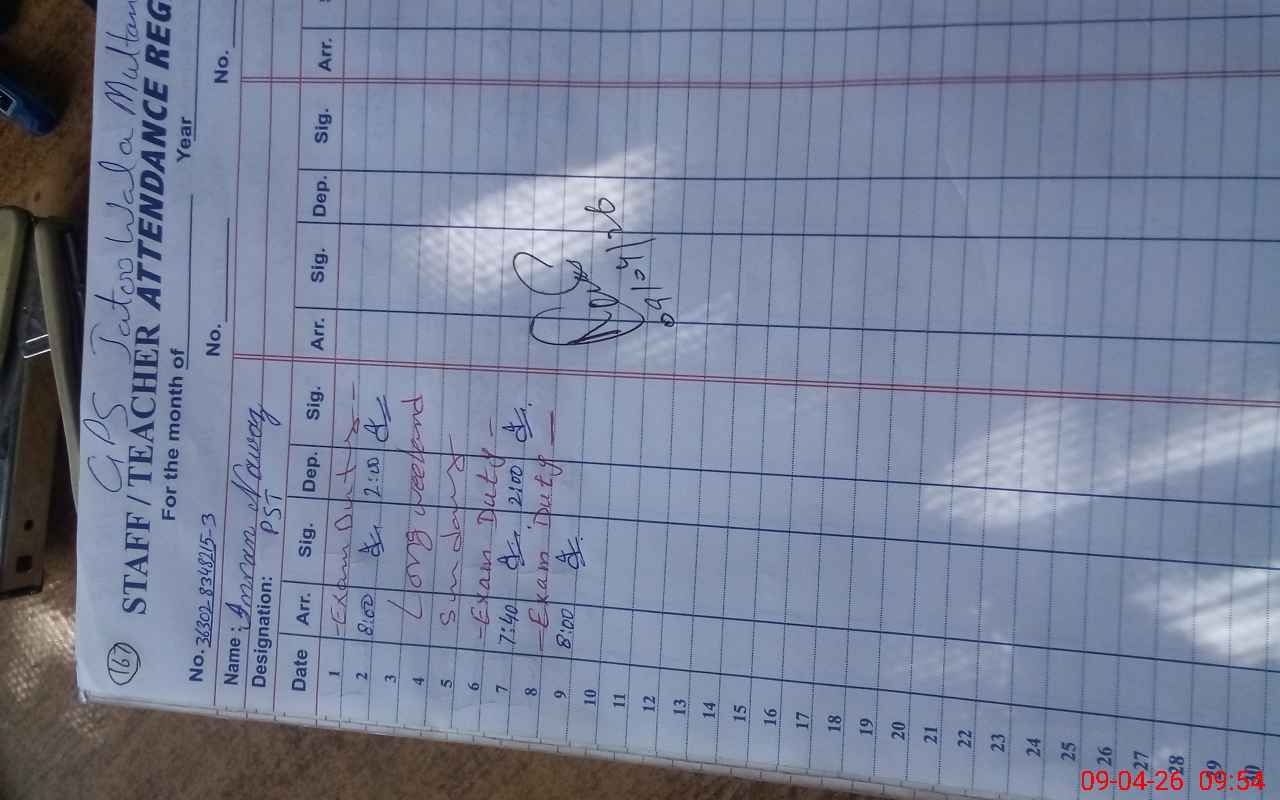 167 GPS Tatoo Wala Multan
STAFF / TEACHER ATTENDANCE REG
For the month of Year
No. 36302-8348215-3 No. No.
Name: Imran Nawaz
Designation: PST
Date Arr. Sig. Dep. Sig. Arr. Sig. Dep. Sig. Arr.
1 - Exam Duty -
2 8:00 2:00
3
4 Long weekend
5 Sunday
6 - Exam Duty -
7 7:40 2:00
8 - Exam Duty -
9 8:00
10
11
12
13
14
15
16
17
18
19
20
21
22
23
24
25
26
27
28
29
30
09/04/26
09-04-26 09:54